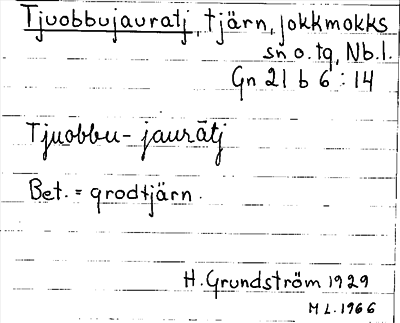 Tjuobbujauratj, tjärn, Jokkmokks
sn o. tg, Nb.l.
Gn 21 b 6 : 14
Tjuobbu-jaurātj
Bet. = grodtjärn.
H. Grundström 1929
M L. 1966